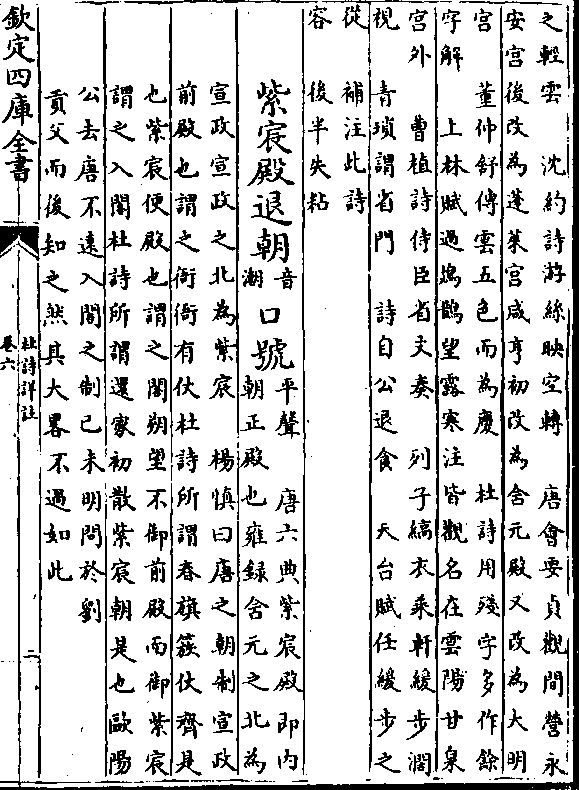 之輕雲　沈約詩游絲映空轉　唐會要貞觀間營永
安宫後改為蓬萊宫咸亨初改為含元殿又改為大明
宫　董仲舒傳雲五色而為慶　杜詩用殘字多作餘
字解　上林賦過鳷鵲望露寒注皆觀名在雲陽甘泉
宫外　曹植詩侍臣省文奏　列子縞衣乘軒緩步濶
視　青瑣謂省門　詩自公退食　天台賦任緩步之
從　補注此詩
容　後半失粘
紫宸殿退朝音潮口號平聲　唐六典紫宸殿即内
朝正殿也雍録含元之北為
宣政宣政之北為紫宸　楊慎曰唐之朝制宣政
前殿也謂之衙衙有仗杜詩所謂春旗簇仗齊是
也紫宸便殿也謂之閤朔望不御前殿而御紫宸
謂之入閤杜詩所謂還家初散紫宸朝是也歐陽
公去唐不遠入閤之制已未明問於劉
貢父而後知之然其大畧不過如此
欽定四庫全書
杜詩詳註
卷六
二